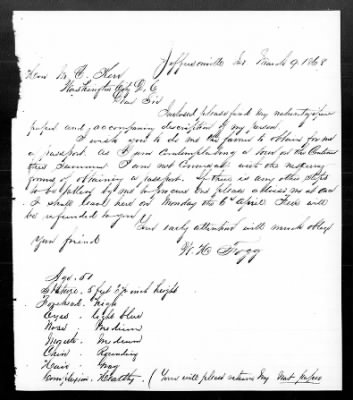 Jeffersonville Ind March 9 1868
Hon M. C. Kerr
Washington City D. C.
Dear Sir
Inclosed please find my naturalization
papers and accompanying discription of my person.
I wish you to do me the favor to obtain for me
a passport as I am contemplating a tour on the
this summer I am not Conversant with the
of obtaining a passport. If there is any other steps
to be by me to procure one please advise me at once
I shall leave here on Monday the 6th April Fees will
be refunded to you
Your early attention will much oblige
Your friend
W. H. Fogg
Age. 51
Stature. 5 feet inch height
Forehead. High
Eyes. light blue
Nose Medium
Mouth. Medium
Chin Rounding
Hair Gray
Complexion. Healthy. (You will please return my Nat papers